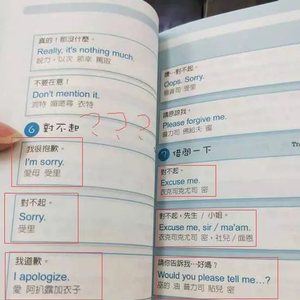 真的！那沒什麼。
Really, it's nothing much.
銳力，以次 那幸 罵取
不要在意！
Don't mention it.
洞特 緬遜尋 衣特
6 對不起
???
我很抱歉。
I'm sorry.
愛母 受里
對不起。
Sorry.
受里
我道歉。
I apologize.
愛 阿扒露加衣子
噢，對不起。
Oops. Sorry.
受里
請原諒我。
Please forgive me.
7 借問一下
Tra
對不起。
Excuse me.
衣克司克尤司 密
對不起，先生 / 小姐。
Excuse me, sir / ma'am.
衣克司克尤司 密，社兒 / 面恩
請你告訴我…好嗎？
Would you please tell me…?
密